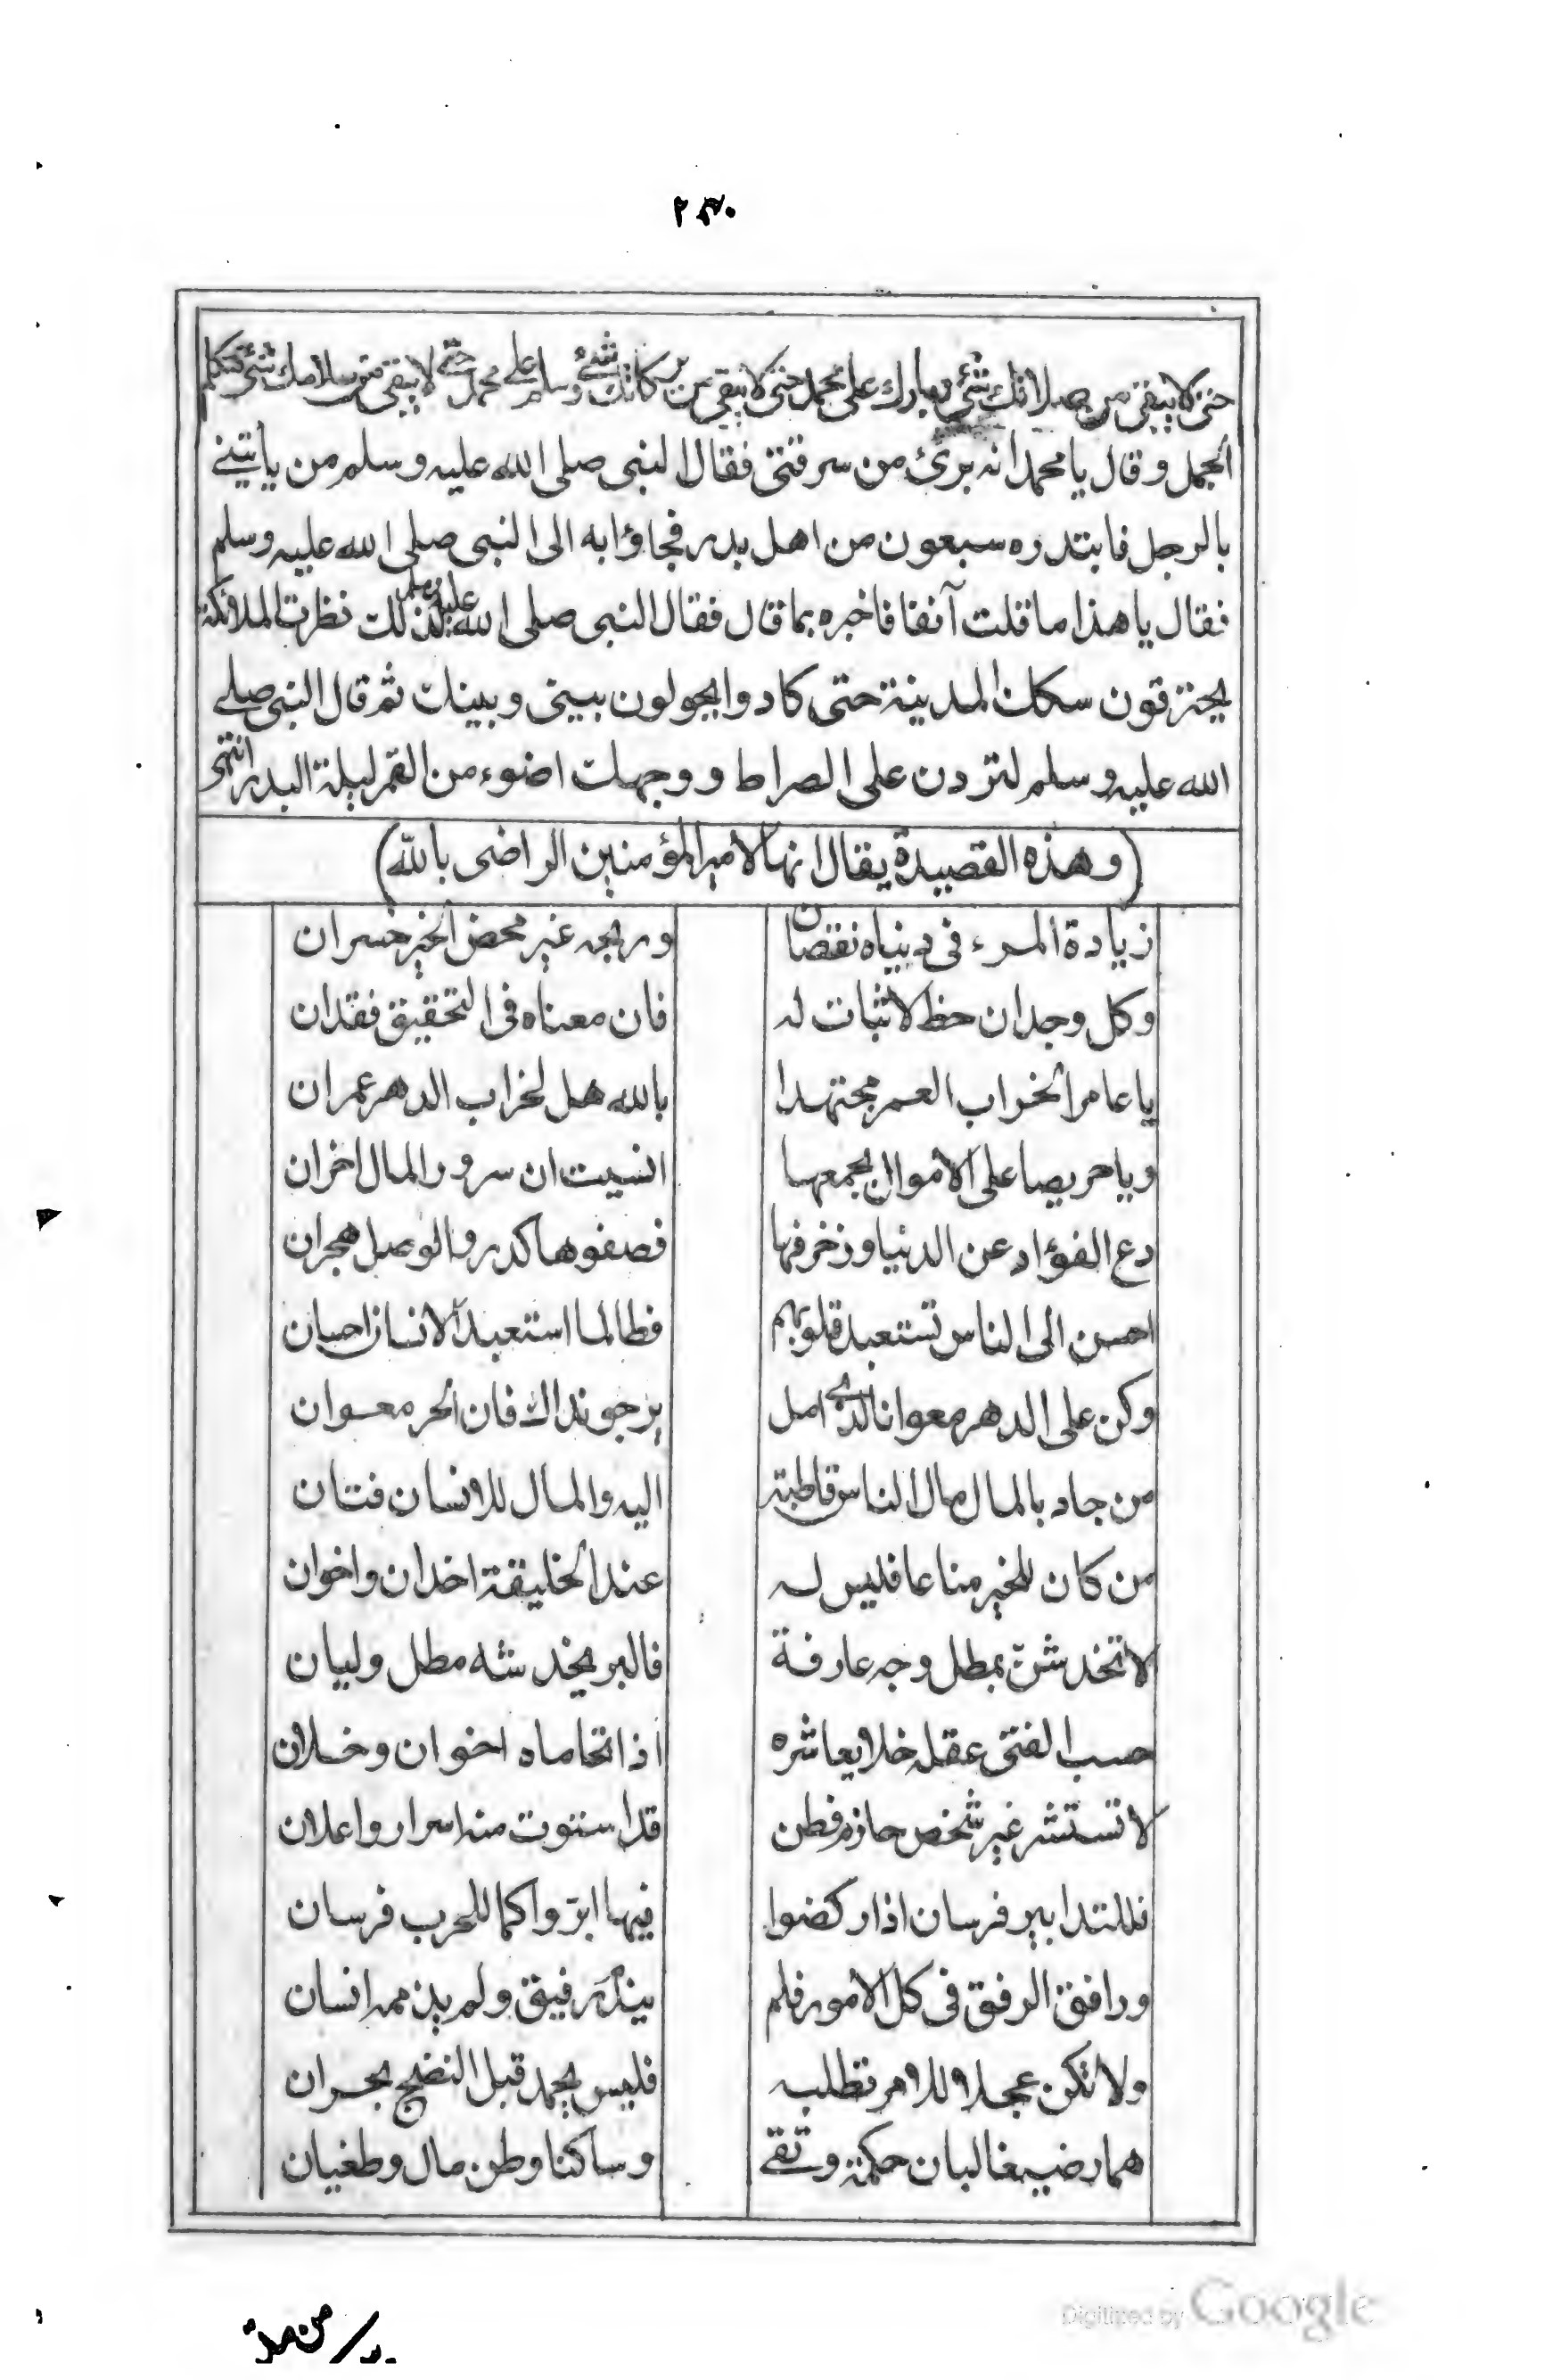 ٢٣٠
حتى لا يبقى من صلاتك شئ وبارك على محمد حتى لا يبقى من بركاتك شئ وسلم على محمد حتى لا يبقى من سلامك شئ فتكلم
الجمل وقال يا محمد انه برئ من سرقتى فقال النبى صلى الله عليه وسلم من يأتينى
بالرجل فابتدره سبعون من اهل بدر فجاؤا به الى النبى صلى الله عليه وسلم
فقال يا هذا ما قلت آنفا فاخبره بما قال فقال النبى صلى الله عليه وسلم لذلك نظرت الملائكة
يخترقون سكك المدينة حتى كادوا يحولون بينى وبينك ثم قال النبى صلى
الله عليه وسلم لتردن على الصراط ووجهك اضوء من القمر ليلة البدر انتهى
(وهذه القصيدة يقال انها لأمير المؤمنين الراضى بالله)
زيادة المرء فى دنياه نقصان وربحه غير محض الخير خسران
وكل وجدان حظ لا ثبات له فان معناه فى التحقيق فقدان
يا عامرا لخراب العمر مجتهدا بالله هل لخراب الدهر عمران
ويا حريصا على الأموال يجمعها انسيت ان سرور المال احزان
دع الفؤاد عن الدنيا وزخرفها فصفوها كدر والوصل هجران
احسن الى الناس تستعبد قلوبهم فطالما استعبد الانسان احسان
وكن على الدهر معوانا لذى امل يرجو نداك فان الحر معوان
من جاد بالمال مال الناس قاطبة اليه والمال للانسان فتان
من كان للخير مناعا فليس له عند الخليقة اخدان واخوان
لا تخدشنّ بمطل وجه عارفة فالبر يخدشه مطل وليان
حسب الفتى عقله خلا يعاشره اذا تحاماه اخوان وخلان
لا تستشر غير شخص حازم فطن قد استوت منه اسرار واعلان
فللتدابير فرسان اذا ركضوا فيها ابرّوا كما للحرب فرسان
ورافق الرفق فى كل الأمور فلم يندم رفيق ولم يذممه انسان
ولا تكن عجلا للامر تطلبه فليس يحمد قبل النضج بحران
هما رضيعا لبان حكمة وتقى وساكنا وطن مال وطغيان
Digitized by Google